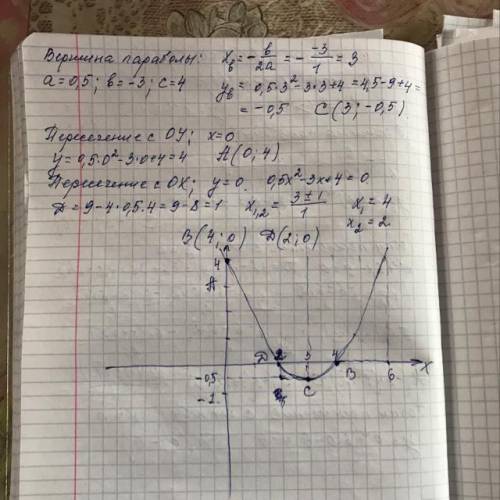 Вершина параболы: xв = -в/2a = - -3/1 = 3
a=0,5; в=-3; c=4 yв = 0,5·3²-3·3+4=4,5-9+4=
= -0,5 C(3; -0,5)
Пересечение с OY; x=0
y=0,5·0²-3·0+4=4 A(0; 4)
Пересечение с OX; y=0. 0,5x²-3x+4=0
D=9-4·0,5·4=9-8=1 x1,2 = 3±1/1 x1=4
x2=2
B(4;0) D(2;0)
4
A
D 2 3 4 6 X
B
-0,5
C
-1